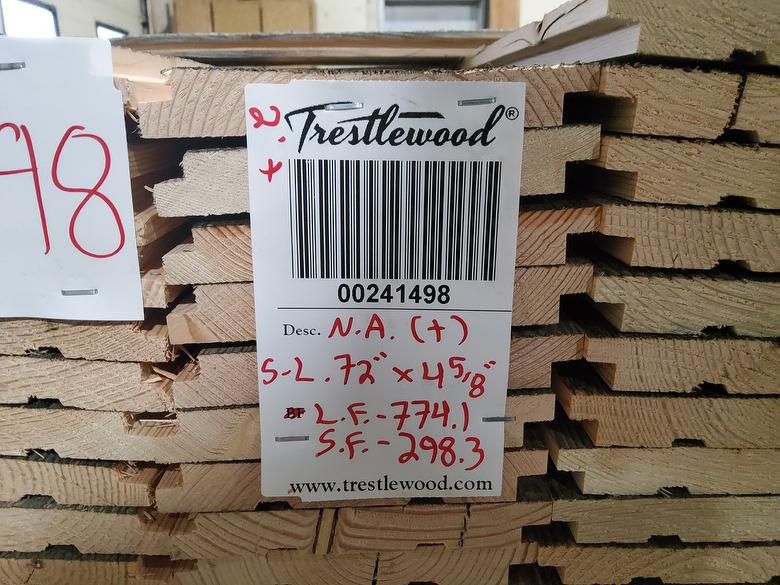 98
Trestlewood®
00241498
Desc. N.A. (+)
S-L. 72" x 4 5/8"
BF L.F. - 774.1
S.F. - 298.3
www.trestlewood.com